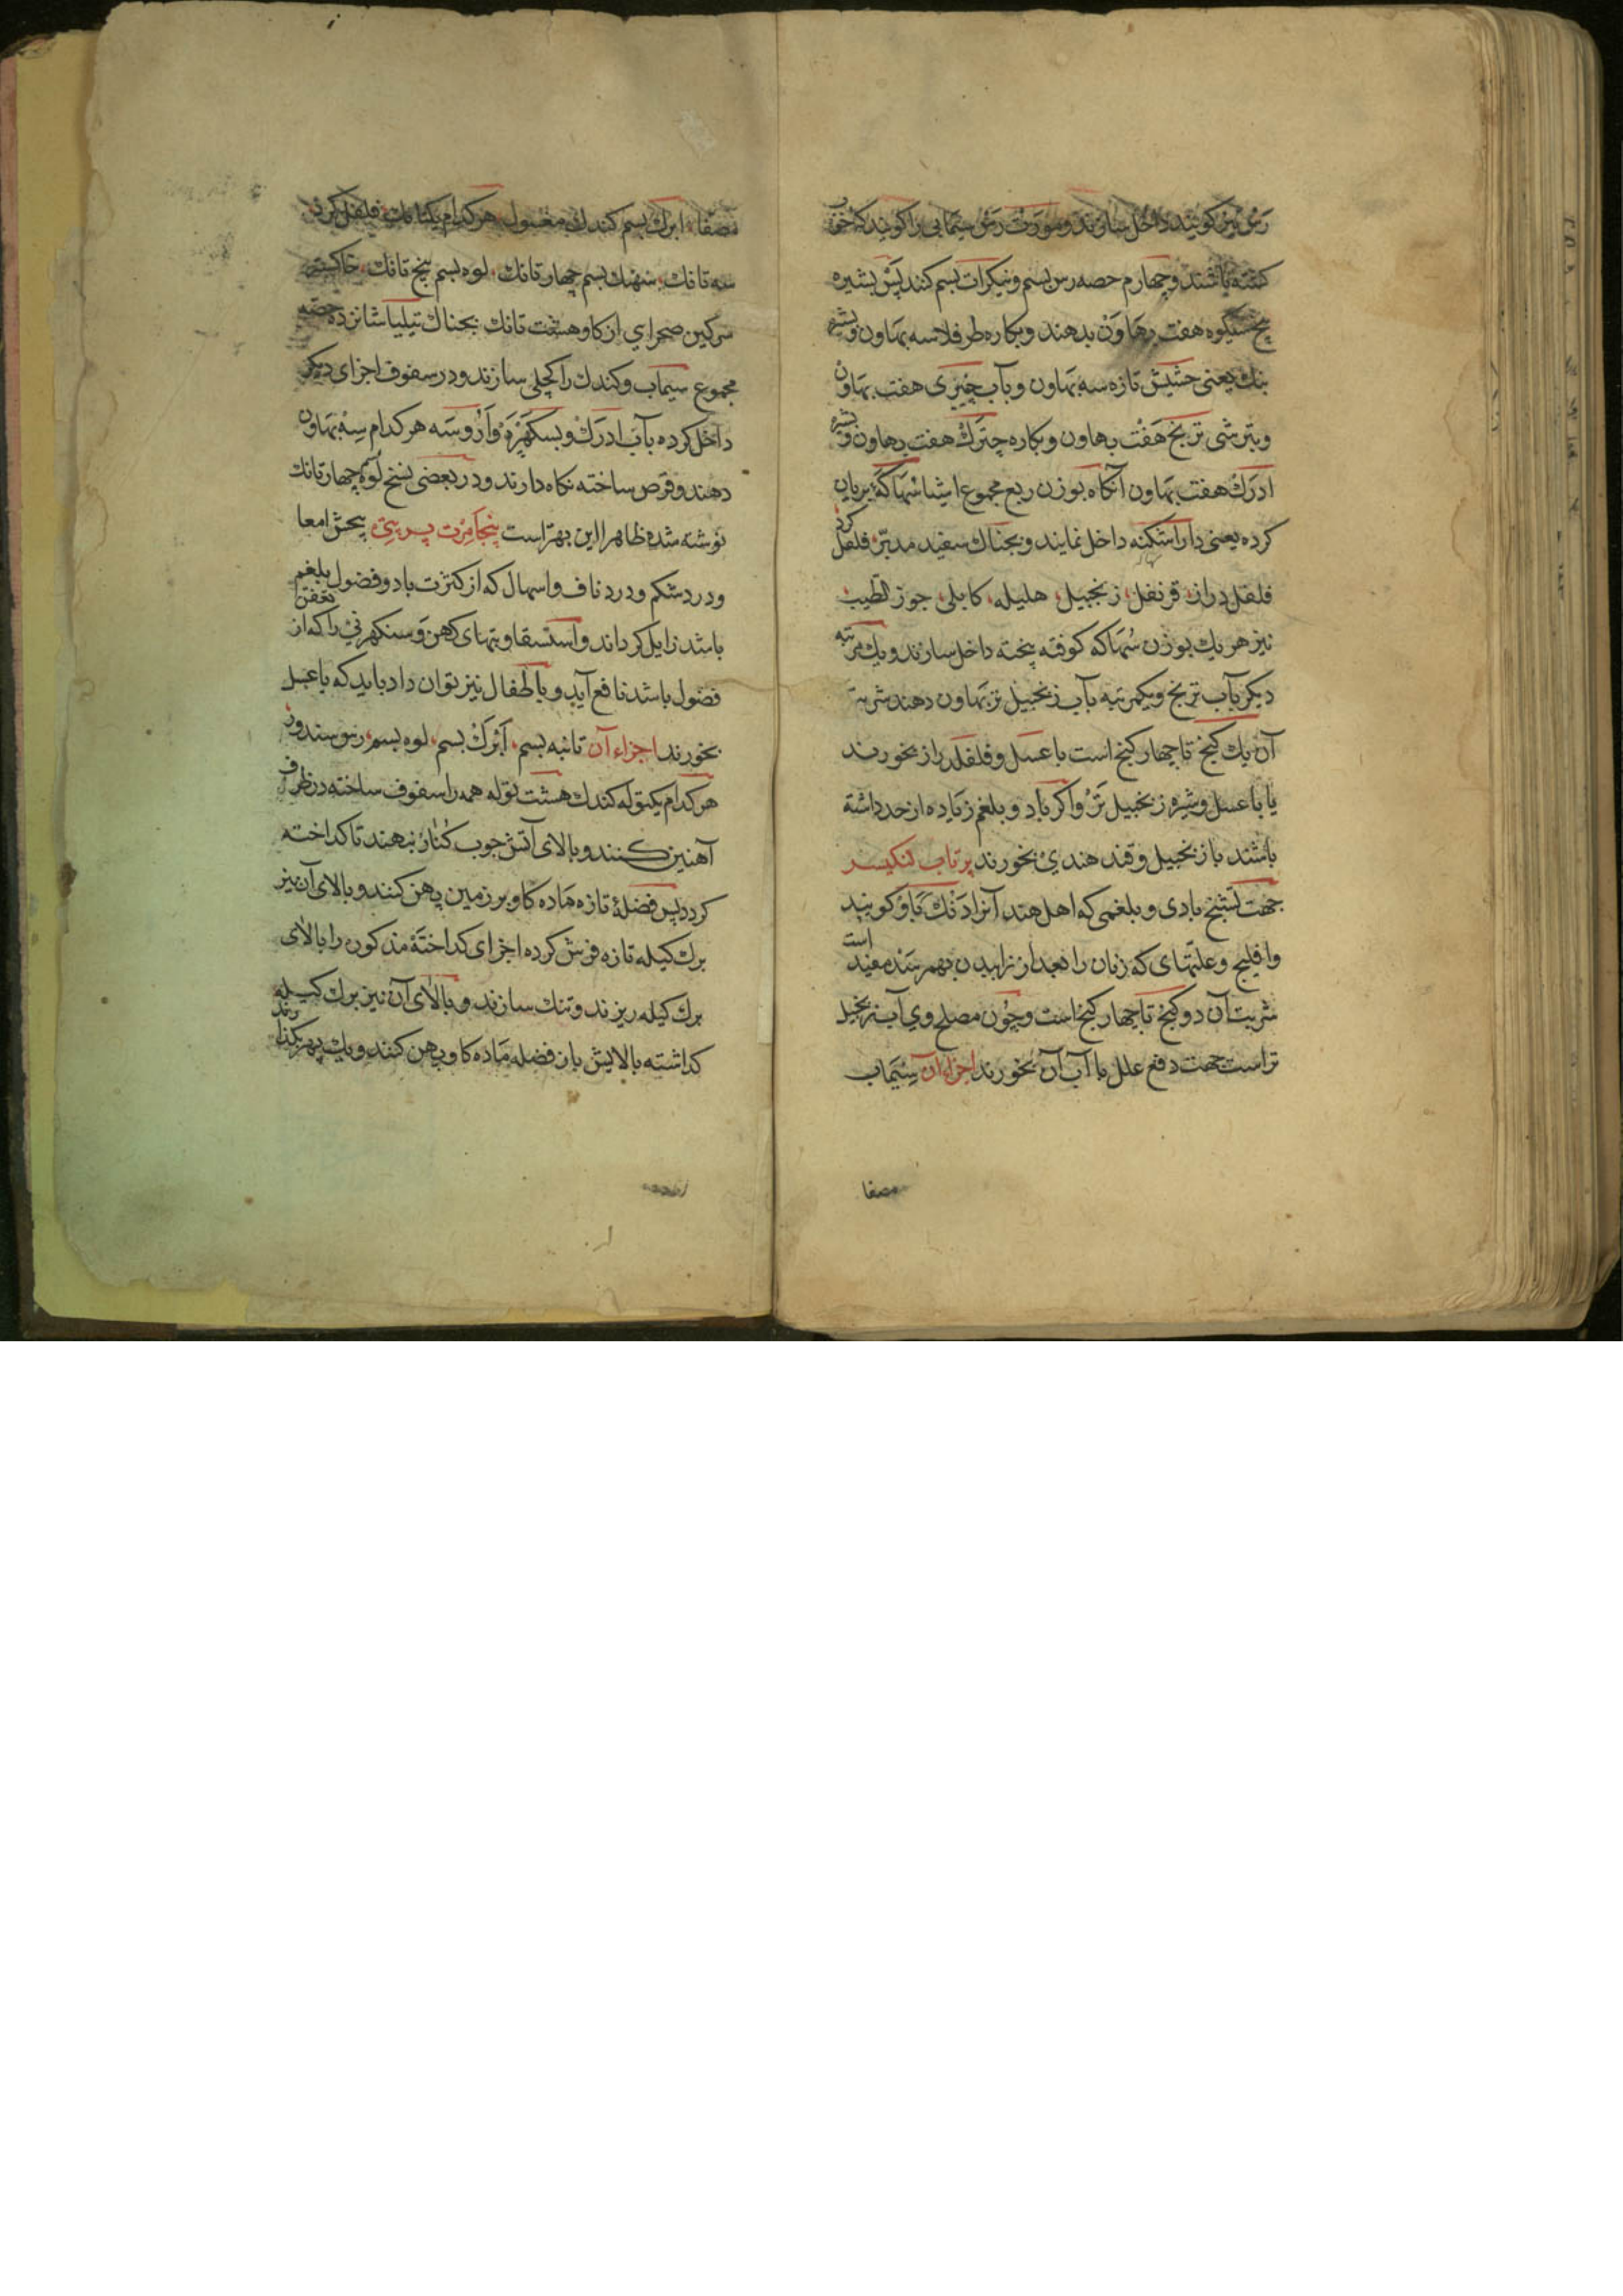 رس نیز کویند داخل سازند و مورت رس سیمابی را کویند که خوب
کشته باشند و چهارم حصه رس بسم و نیکرات بسم کنند پس بشیره
هفت بهاون بدهند و بکاره طرفلا سه بهاون و بشیره
بنك یعنی حشیش تازه سه بهاون و بآب چیزی هفت بهاون
و بترشی ترنج هفت بهاون و بکاره چترك هفت بهاون و بشیره
ادرك هفت بهاون آنکاه بوزن ربع مجموع اشیا سهاکه بریان
کرده یعنی دارا شکنه داخل نمایند و بجناك سفید مدبّر فلفل کرد
فلفل دراز قرنفل زنجبیل هلیله کابلی جوز الطیب
نیز هر یك بوزن سُهاکه کوفته پخته داخل سازند و یك مرتبه
دیکر بآب ترنج و یکمرتبه بآب زنجبیل تر بهاون دهند شربت
آن یك کنج تا چهار کنج است با عسل و فلفل دراز بخورند
یا با عسل و شیره زنجبیل تر و اکر باد و بلغم زیاده از حد داشته
باشند با زنجبیل و قند هندی بخورند پرتاب لنکیسر
جهت تشنج بادی و بلغمی که اهل هند آنرا دنك باو کویند
و افلیج و علتهای که زنان را بعد از زاییدن بهم رسند مفید است
شربت آن دو کنج تا چهار کنج است و چون مصلح وی آب زنجبیل
تر است جهت دفع علل با آب آن بخورند اجزاء آن سیماب
مصفا
مصفا ابرك بسم کندك مغسول هر کدام یکتانك فلفل کرد
سه تانك سنهك بسم چهار تانك لوه بسم پنج تانك خاکستر
سرکین صحرایی از کاو هشت تانك بجناك تیلیا شانزده حصه
مجموع سیماب و کندك را کجلی سازند و در سفوف اجزای دیکر
داخل کرده بآب ادرك و بسکهپره و اروسه هر کدام سه بهاون
دهند و قرص ساخته نکاه دارند و در بعضی نسخ لوه چهار تانك
نوشته شده ظاهرا این بهتر است پنجامرت پربتی پیچش امعا
و درد شکم و درد ناف و اسهال که از کثرت باد و فضول بلغم
باشد زایل کرداند و استسقا و تبهای کهن و سنکهرنی را که از تعفن
فضول باشد نافع آید و باطفال نیز توان داد باید که با عسل
بخورند اجزاء آن تانبه بسم ابرك بسم لوه بسم رس سندور
هر کدام یکتوله کندك هشت توله همه را سفوف ساخته در ظرف
آهنین کنند و بالای آتش چوب کنار بنهند تا کداخته
کردد پس فضلهٔ تازه ماده کاو بر زمین پهن کنند و بالای آن نیز
برك کیله تازه فرش کرده اجزای کداختهٔ مذکور را بالای
برك کیله ریزند و تنك سازند و بالای آن نیز برك کیله
کداشته بالایش باز فضله ماده کاو پهن کنند و یك پهر بکذارند